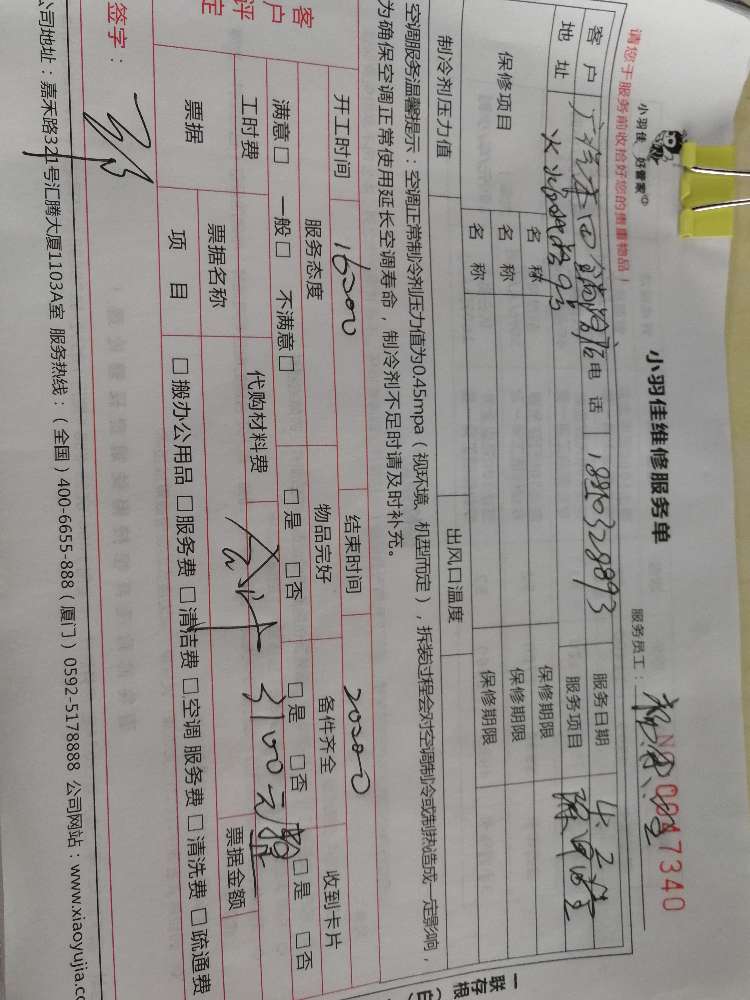 小羽佳 好管家
小羽佳维修服务单
NO 0047340
请您于服务前收拾好您的贵重物品！
服务员工：
客户 广汽本田 店 电话 18910328893 服务日期
地址 火炬 服务项目
保修项目 名称 保修期限
名称 保修期限
名称 保修期限
制冷剂压力值 出风口温度
空调服务温馨提示：空调正常制冷剂压力值为0.45mpa（视环境、机型而定），拆装过程会对空调制冷或制热造成一定影响，
为确保空调正常使用延长空调寿命，制冷剂不足时请及时补充。
开工时间 16:00 结束时间 20:00
客户评定 服务态度 物品完好 备件齐全 收到卡片
满意□ 一般□ 不满意□ □是 □否 □是 □否 □是 □否
工时费 代购材料费 合计 3100元
票据 票据名称 票据金额
项目 □搬办公用品 □服务费 □清洁费 □空调服务费 □清洗费 □疏通费
签字：
公司地址：嘉禾路321号汇腾大厦1103A室 服务热线：（全国）400-6655-888（厦门）0592-5178888 公司网站：www.xiaoyujia.c
一联存根（白